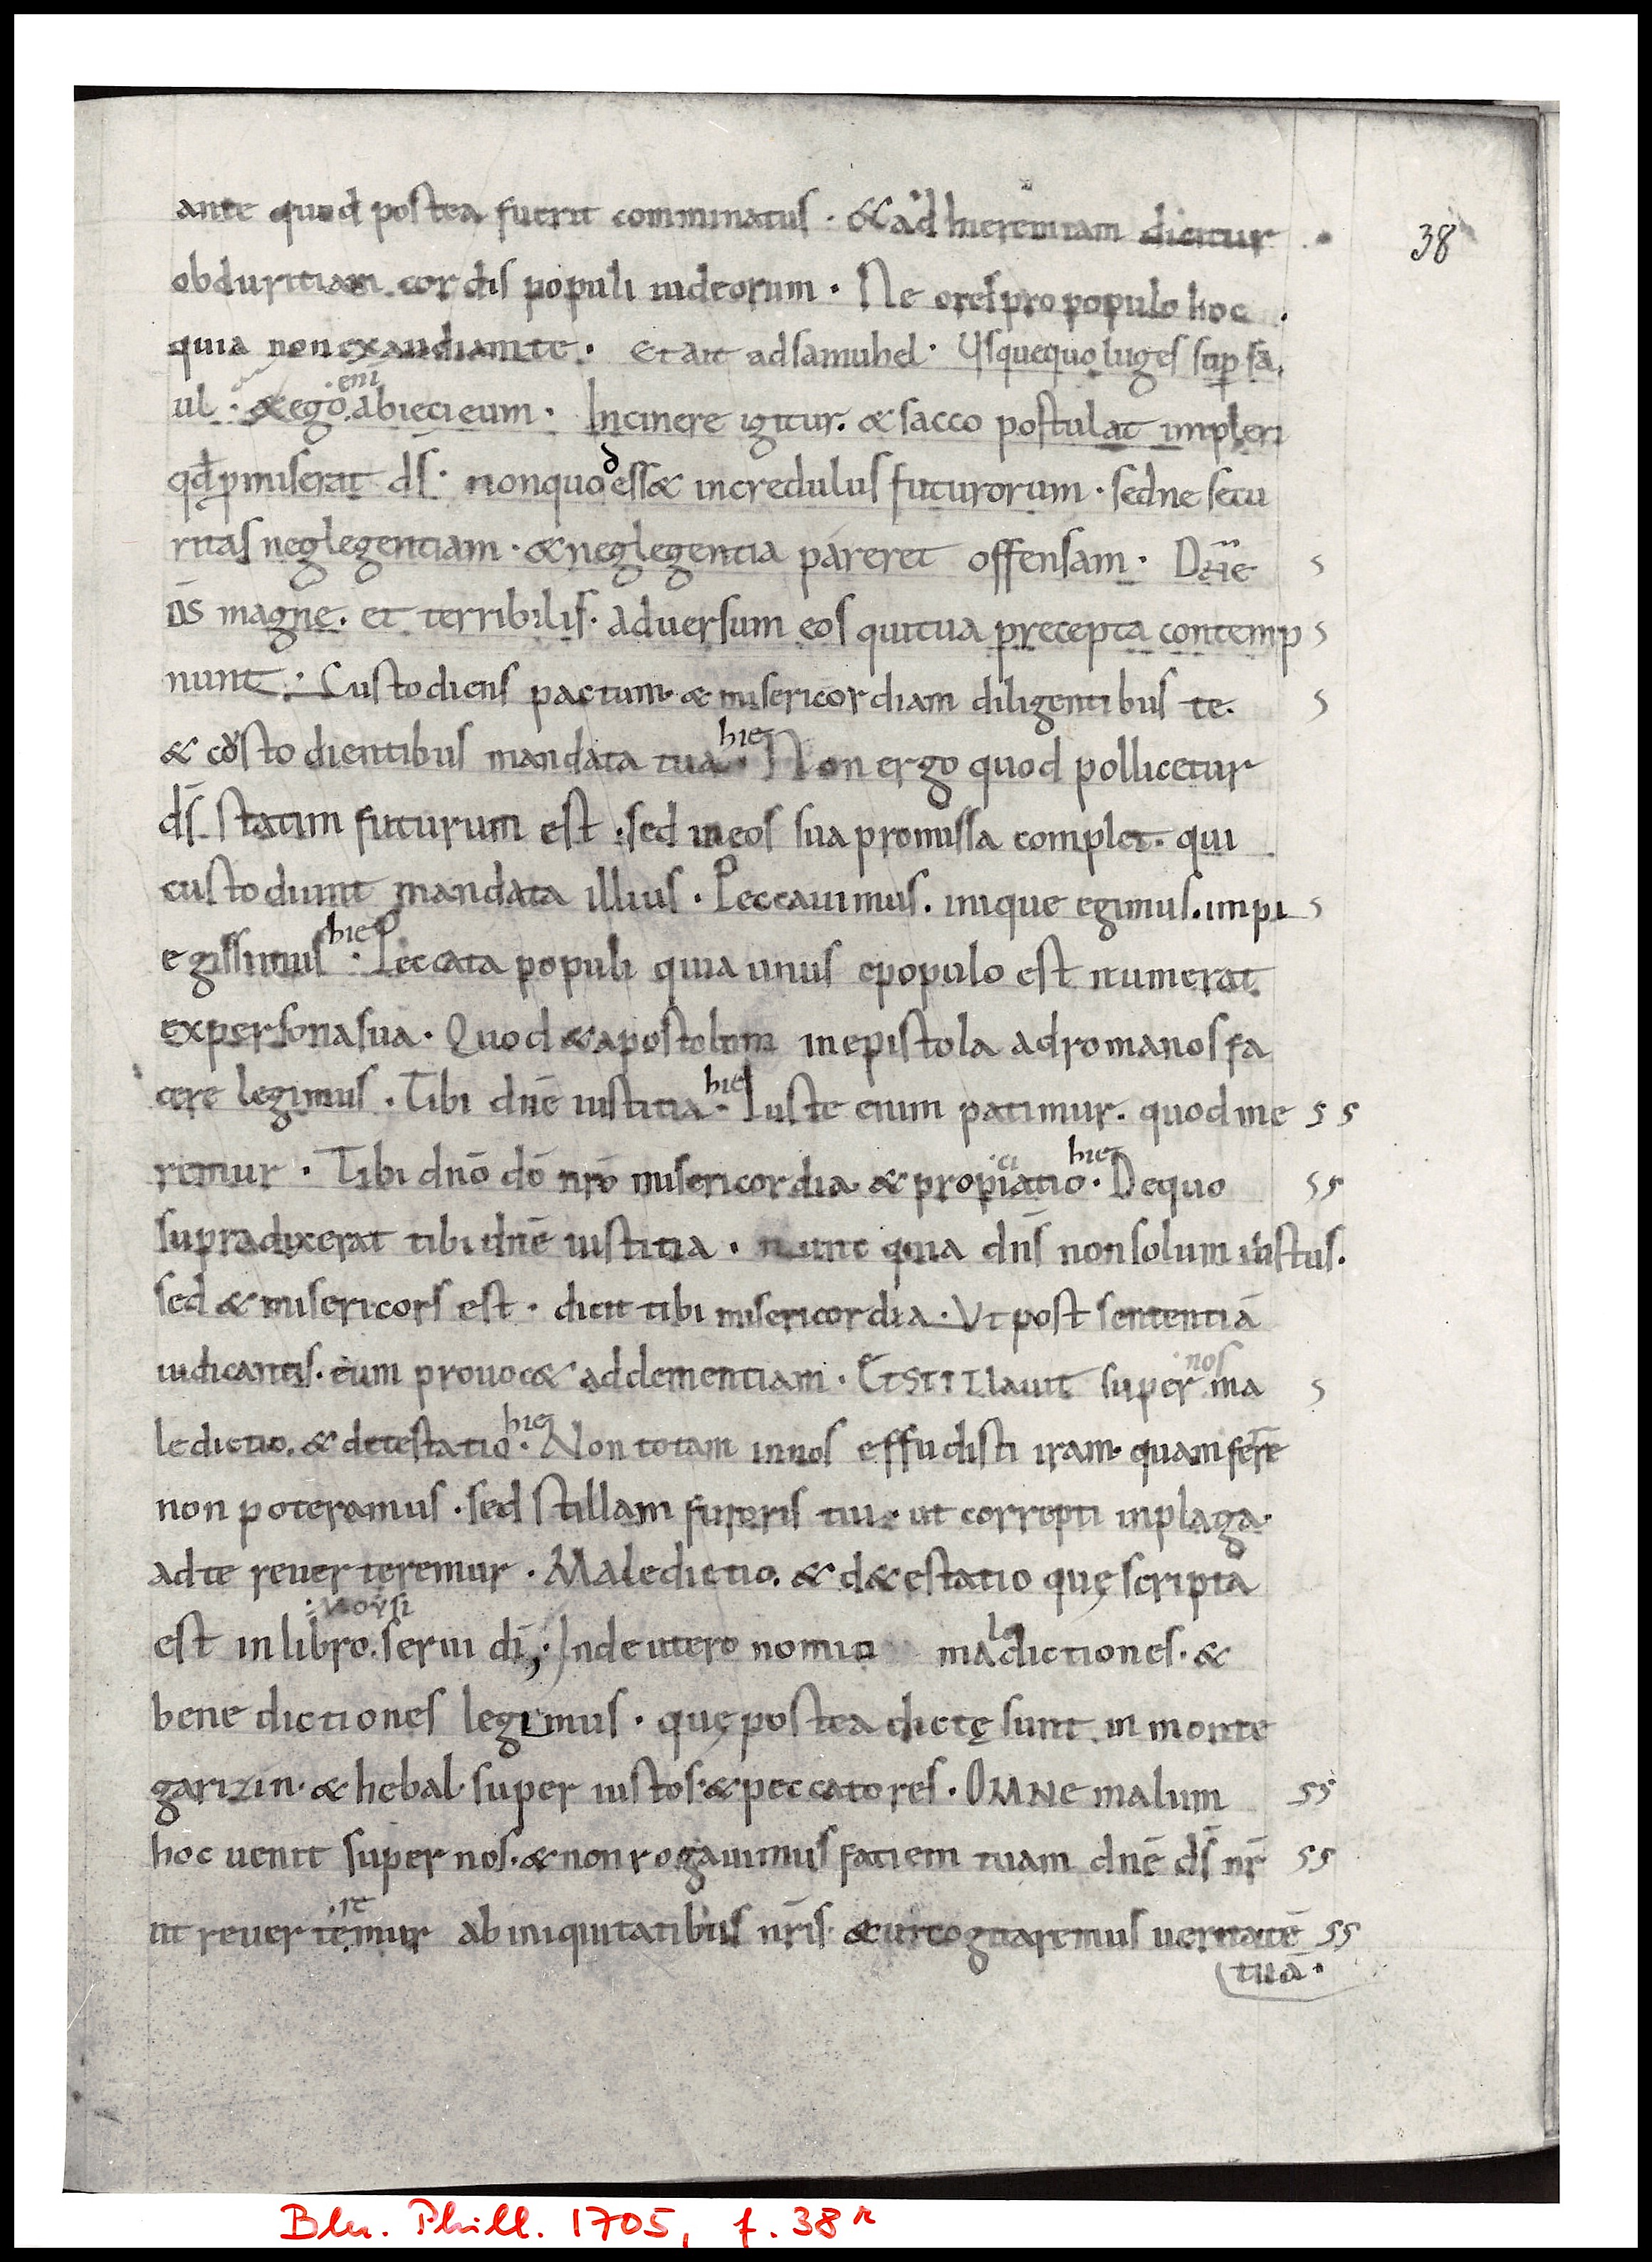 ante quod postea fuerit comminatus · & ad hieremiam dicitur ·
38
obduritiam cordis populi iudeorum · Ne ores pro populo hoc ·
quia non exaudiam te · Et ait ad samuhel · Usquequo luges sup̄ sa,
ul · & ego enī abieci eum · In cinere igitur · & sacco postulat impleri
qd̄ p̄miserat ds̄ · non quod ess& incredulus futurorum · sed ne secu
ritas neglegentiam · & neglegentia pareret offensam · Dn̄e s
DS̄ magne · et terribilis · adversum eos qui tua precepta contemp s
nunt · Custodiens pactum · & misericordiam diligentibus te · s
& custodientibus mandata tua · hie Non ergo quod pollicetur
ds̄ statim futurum est · sed in eos sua promissa complet · qui
custodiunt mandata illius · Peccauimus · inique egimus · impi s
e gessimus · hie Peccata populi quia unus e populo est numerat
ex persona sua · Quod & apostolum in epistola ad romanos fa
cere legimus · Tibi dn̄e iustitia · hie Iuste enim patimur · quod me ss
remur · Tibi dn̄o dō nr̄o misericordia & propiciatio · hie De quo ss
supra dixerat tibi dn̄e iustitia · nunc quia dn̄s non solum iustus ·
sed & misericors est · dicit tibi misericordia · Ut post sententiā
iudicantis · eum prouoc& ad clementiam · Et stillauit super nos ma s
ledictio · & detestatio · hie Non totam in nos effudisti iram · quam ferr̄e
non poteramus · sed stillam furoris tui · ut correpti in plaga ·
ad te reuerteremur · Maledictio · & d&estatio quę scripta
est in libro moysi serui dī; · In deutero nomio maledictiones · &
benedictiones legimus · quę postea dictę sunt in monte
garizin · & hebal · super iustos · & peccatores · OMNe malum ss
hoc uenit super nos · & non rogauimus faciem tuam dn̄e ds̄ nr̄ ss
ut reuerteremur ab iniquitatibus nr̄is · & ut cogitaremus ueritatē ss
tuā ·
Bln. Phill. 1705, f. 38r